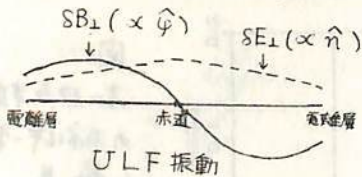 δB⊥(∝φ̂)
δE⊥(∝n̂)
電離層 赤道 電離層
ULF振動